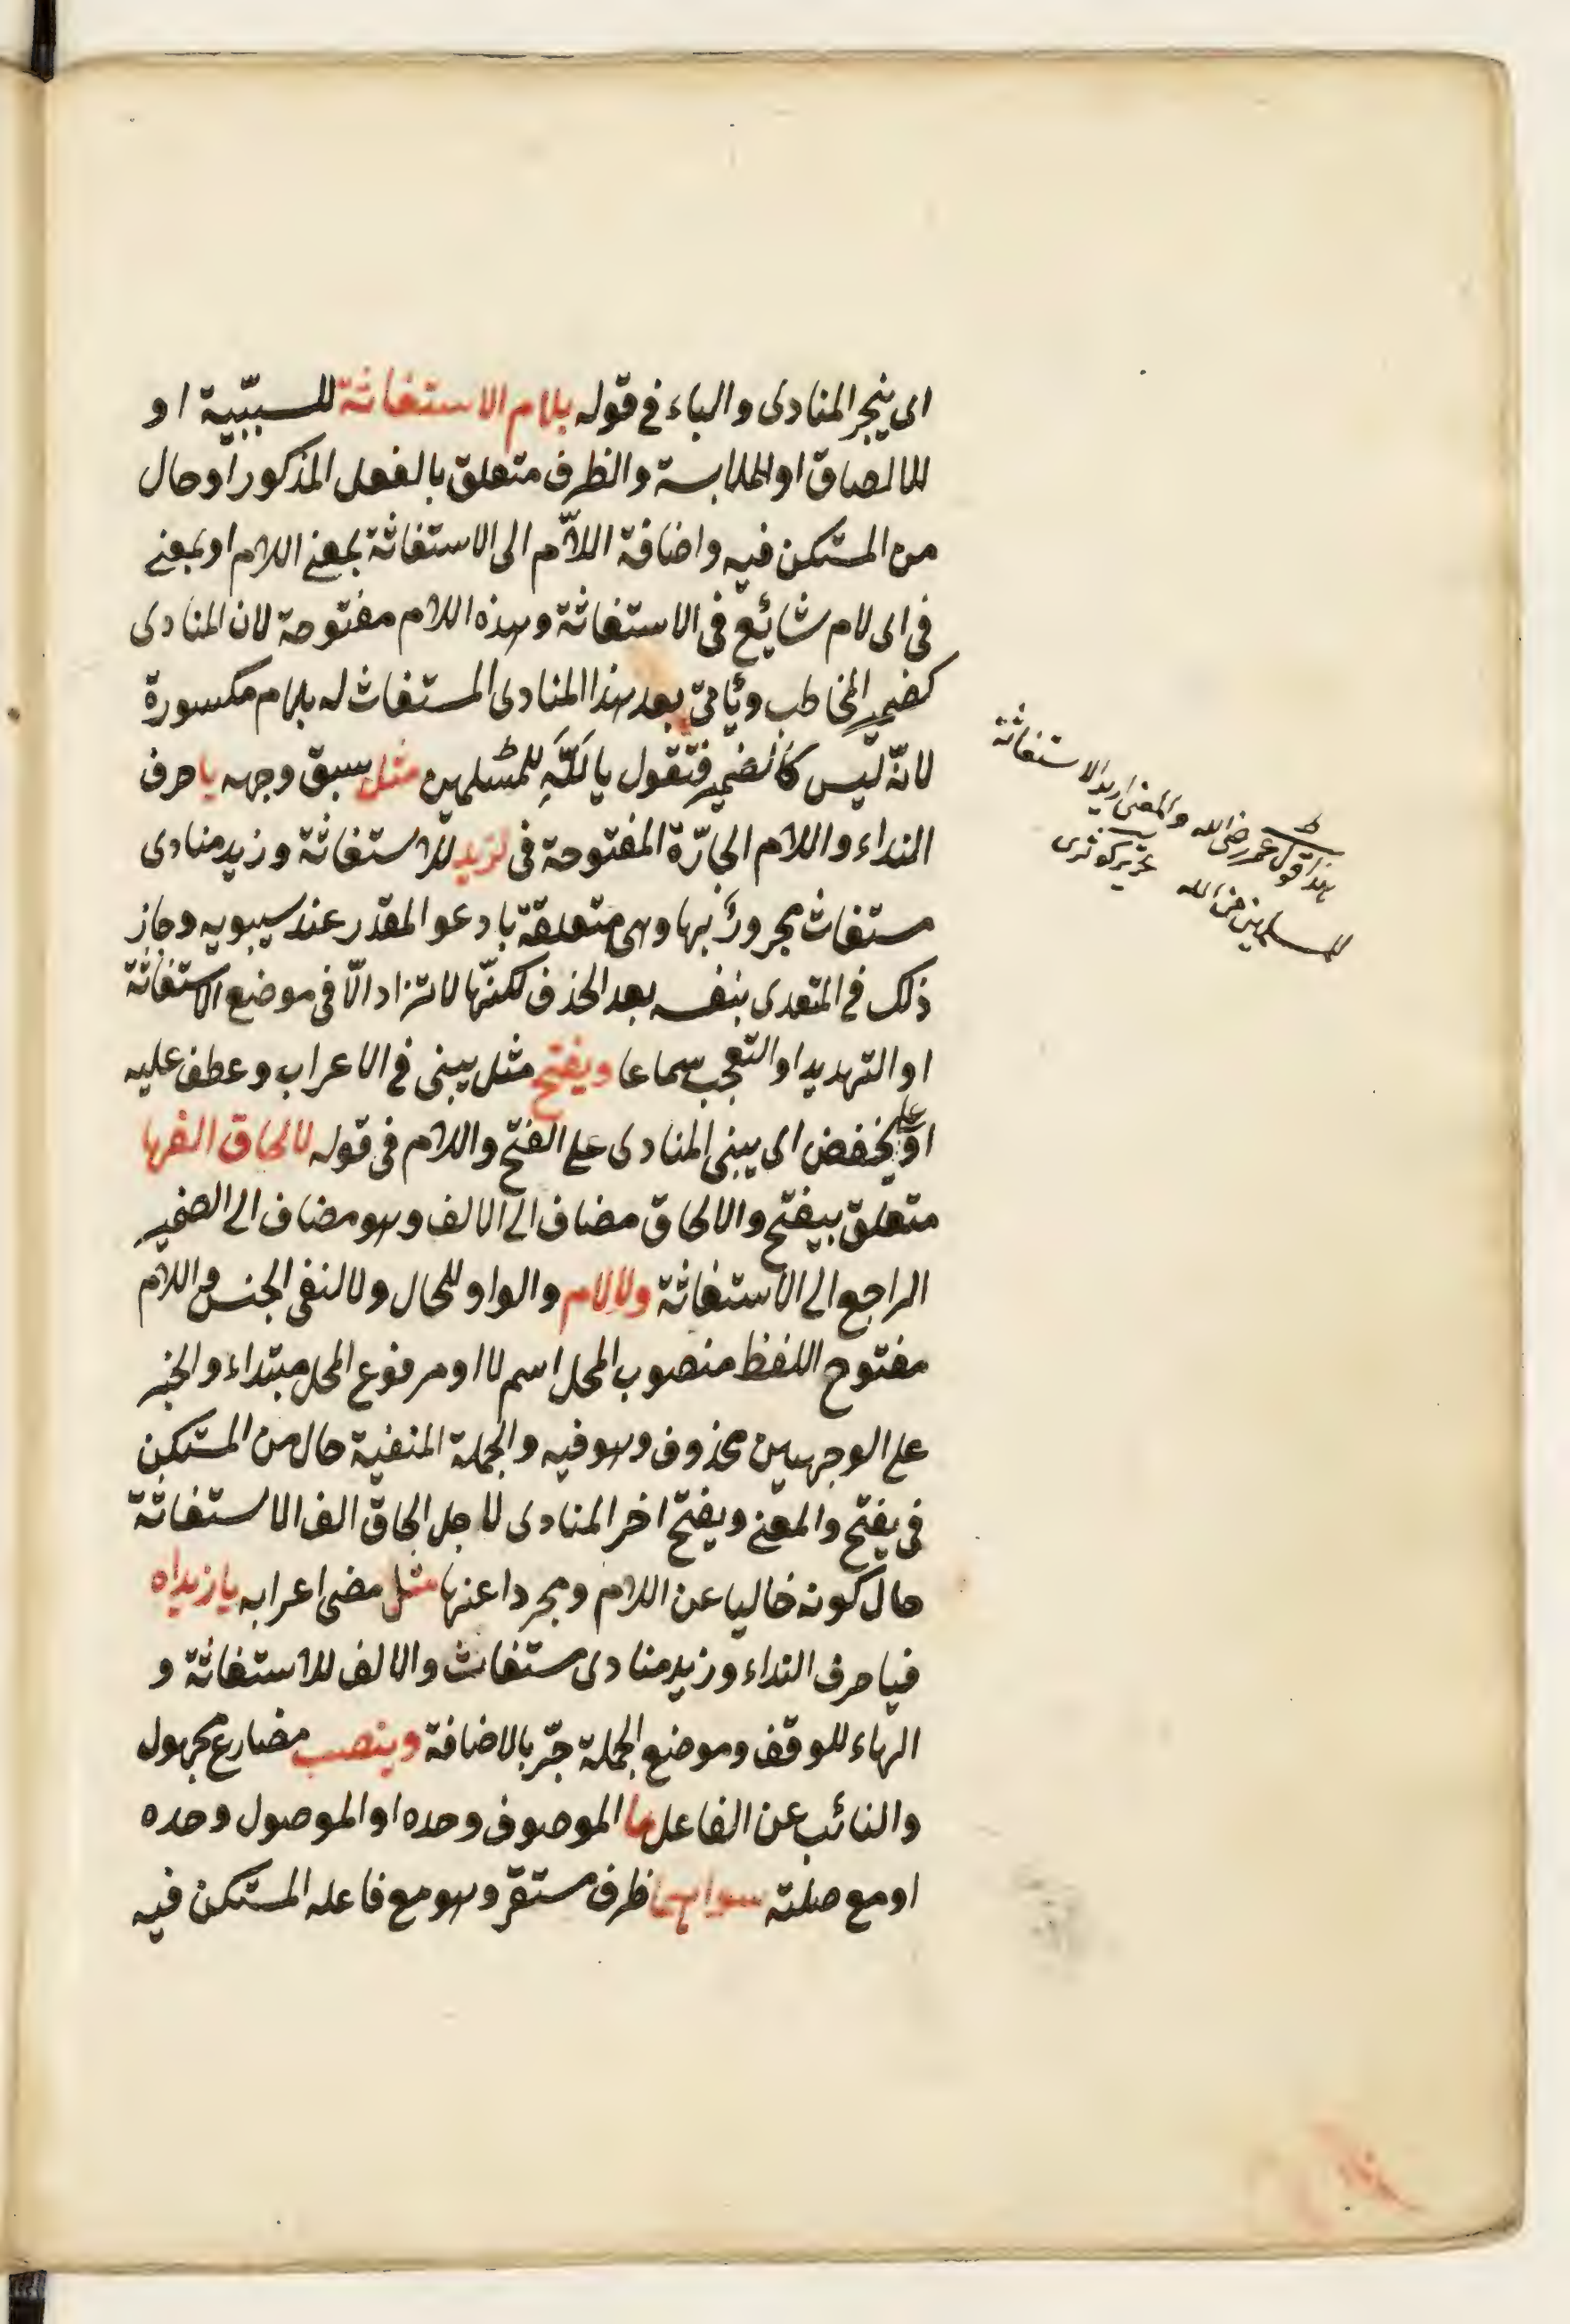 اى ينجر المنادى والباء فى قوله بلام الاستغاثة للسببيّة او
للالصاق او الملابسة والظرف متعلق بالفعل المذكور او حال
من المستكن فيه واضافة اللام الى الاستغاثة بمعنى اللام او بمعنى
فى اى لام شائع فى الاستغاثة وهذه اللام مفتوحة لان المنادى
كضمير المخاطب ويأتى بعد هذا المنادى المستغاث له بلام مكسورة
لانّه ليس كالضمير فتقول يا لَلّهِ لِلمسلمين مثل سبق وجهه يا حرف
النداء واللام الجارّة المفتوحة فى لزيد للاستغاثة وزيد منادى
مستغاث مجرور بها وهى متعلقة بادعو المقدر عند سيبويه وجاز
ذلك فى المتعدى بنفسه بعد الحذف لكنّها لا تزاد الّا فى موضع الاستغاثة
او التهديد او التعجب سماعا ويفتح مثل يبنى فى الاعراب وعطف عليه
او على يخفض اى يبنى المنادى على الفتح واللام فى قوله لالحاق الفها
متعلق بيفتح والالحاق مضاف الى الالف وهو مضاف الى الضمير
الراجع الى الاستغاثة ولا لام والواو للحال ولا لنفى الجنس واللام
مفتوح اللفظ منصوب المحل اسم لا او مرفوع المحل مبتداء والخبر
على الوجهين محذوف وهو فيه والجملة المنفية حال من المستكن
فى يفتح والمعنى ويفتح اخر المنادى لاجل الحاق الف الاستغاثة
حال كونه خاليا عن اللام ومجردا عنها مثل مضى اعرابه يا زيداه
فيا حرف النداء وزيد منادى مستغاث والالف للاستغاثة و
الهاء للوقف وموضع الجملة جرّ بالاضافة وينصب مضارع مجهول
والنائب عن الفاعل ما الموصوف وحده او الموصول وحده
او مع صلته سواهما ظرف مستقر وهو مع فاعله المستكن فيه
ط
هذا قول عمر رضى الله والمعنى اريد الاستغاثة
للمسلمين من الله